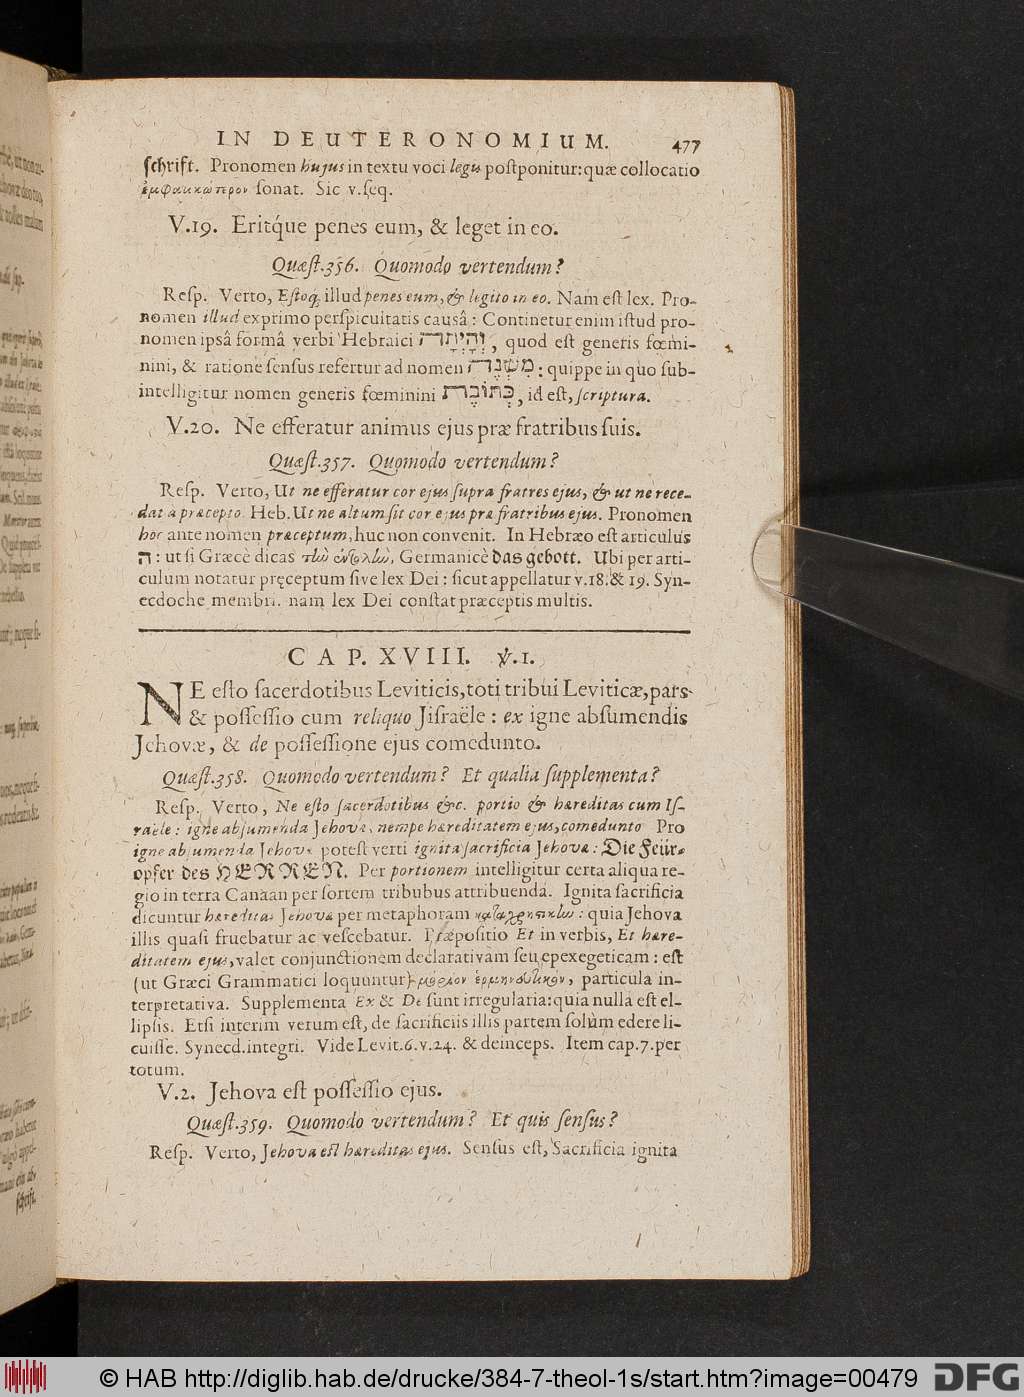 IN DEUTERONOMIUM. 477
ſchrift. Pronomen hujus in textu voci legis poſtponitur: quæ collocatio
ἐμφατικώτερον ſonat. Sic v. ſeq.
V.19. Eritq́ue penes eum, & leget in eo.
Quæſt.356. Quomodo vertendum?
Reſp. Verto, Eſtoq; illud penes eum, & legito in eo. Nam eſt lex. Pro-
nomen illud exprimo perſpicuitatis causâ: Continetur enim iſtud pro-
nomen ipsâ formâ verbi Hebraici וְהָיְתָה, quod eſt generis fœmi-
nini, & ratione ſenſus refertur ad nomen מִשְׁנֶה: quippe in quo ſub-
intelligitur nomen generis fœminini כְּתוֹבֶת, id eſt, ſcriptura.
V.20. Ne efferatur animus ejus præ fratribus ſuis.
Quæſt.357. Quomodo vertendum?
Reſp. Verto, Ut ne efferatur cor ejus ſupra fratres ejus, & ut ne rece-
dat a præcepto. Heb. Ut ne altum ſit cor ejus præ fratribus ejus. Pronomen
hoc ante nomen præceptum, huc non convenit. In Hebræo eſt articulus
ה: ut ſi Græcè dicas τὴν ἐντολὴν, Germanicè das gebott. Ubi per arti-
culum notatur pręceptum ſive lex Dei: ſicut appellatur v.18. & 19. Syn-
ecdoche membri. nam lex Dei conſtat præceptis multis.
CAP. XVIII. ℣.1.
NE eſto ſacerdotibus Leviticis, toti tribui Leviticæ, pars
& poſſeſſio cum reliquo Jiſraële: ex igne abſumendis
Jehovæ, & de poſſeſſione ejus comedunto.
Quæſt.358. Quomodo vertendum? Et qualia ſupplementa?
Reſp. Verto, Ne eſto ſacerdotibus &c. portio & hæreditas cum Iſ-
raele: igne abſumenda Jehovæ, nempe hæreditatem ejus, comedunto. Pro
igne abſumenda Jehovæ poteſt verti ignita ſacrificia Jehovæ: Die Feür-
opfer des HERREN. Per portionem intelligitur certa aliqua re-
gio in terra Canaan per ſortem tribubus attribuenda. Ignita ſacrificia
dicuntur hæreditas Jehovæ per metaphoram καταχρηστικὴν: quia Jehova
illis quaſi fruebatur ac veſcebatur. Præpoſitio Et in verbis, Et hære-
ditatem ejus, valet conjunctionem declarativam ſeu epexegeticam: eſt
(ut Græci Grammatici loquuntur) μόριον ἑρμηνευτικὸν, particula in-
terpretativa. Supplementa Ex & De ſunt irregularia: quia nulla eſt el-
lipſis. Etſi interim verum eſt, de ſacrificiis illis partem ſolùm edere li-
cuiſſe. Synecd. integri. Vide Levit.6.v.24. & deinceps. Item cap.7. per
totum.
V.2. Jehova eſt poſſeſſio ejus.
Quæſt.359. Quomodo vertendum? Et quis ſenſus?
Reſp. Verto, Jehova eſt hæreditas ejus. Senſus eſt, Sacrificia ignita
© HAB http://diglib.hab.de/drucke/384-7-theol-1s/start.htm?image=00479
DFG